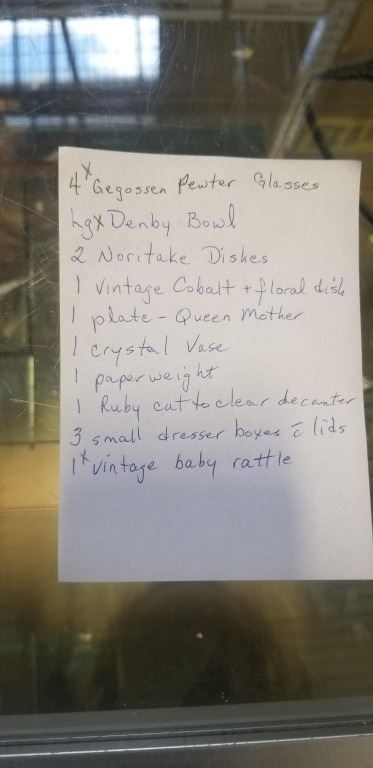 4x Gegossen Pewter Glasses
Lgx Denby Bowl
2 Noritake Dishes
1 Vintage Cobalt + floral dish
1 plate - Queen Mother
1 crystal Vase
1 paperweight
1 Ruby cut to clear decanter
3 small dresser boxes c̄ lids
1x vintage baby rattle